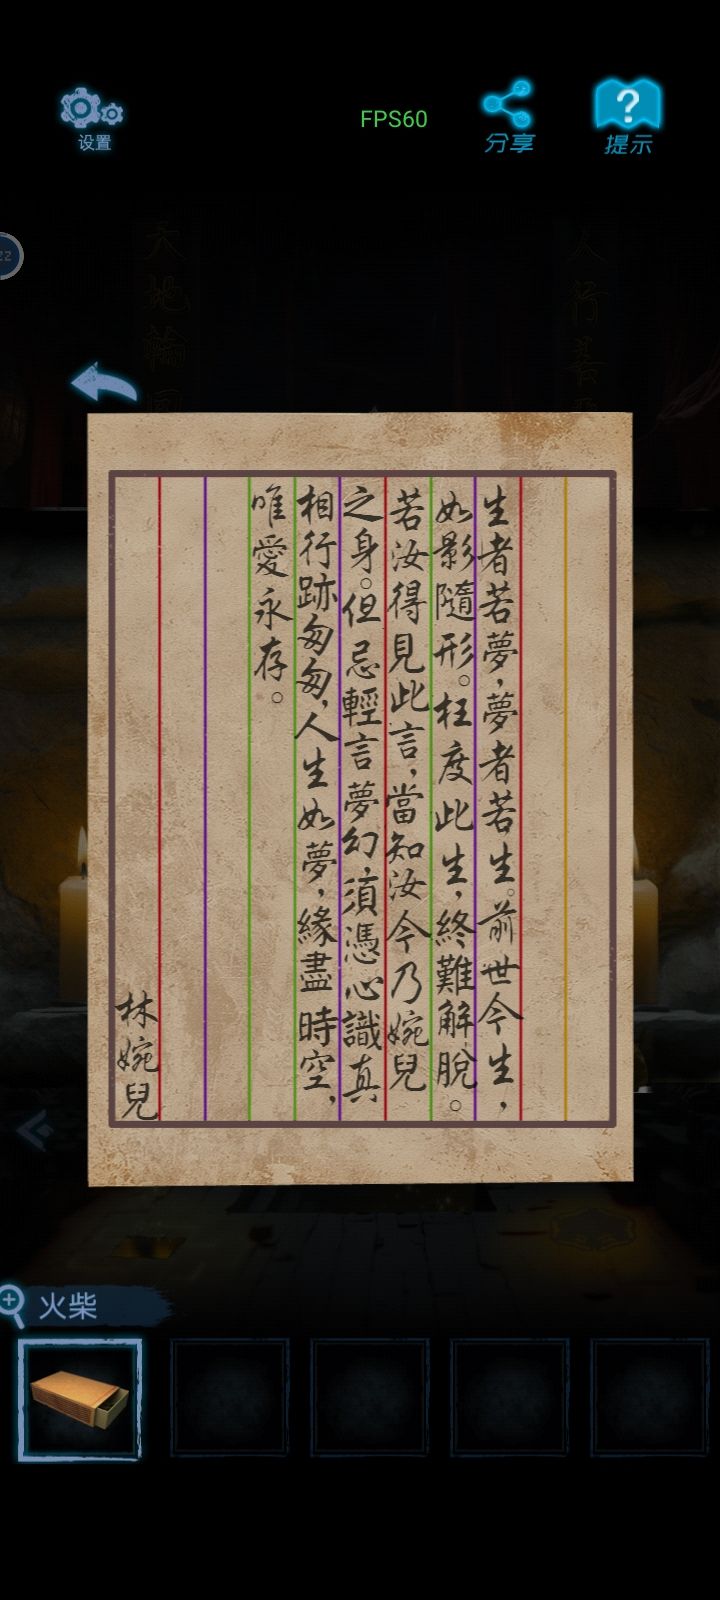 设置
FPS60
分享
提示
22
天地輪回
人行善
生者若夢，夢者若生。前世今生，
如影隨形。枉度此生，終難解脫。
若汝得見此言，當知汝今乃婉兒
之身。但忌輕言夢幻須憑心識真
相行跡匆匆，人生如夢，緣盡時空，
唯愛永存。
林婉兒
火柴